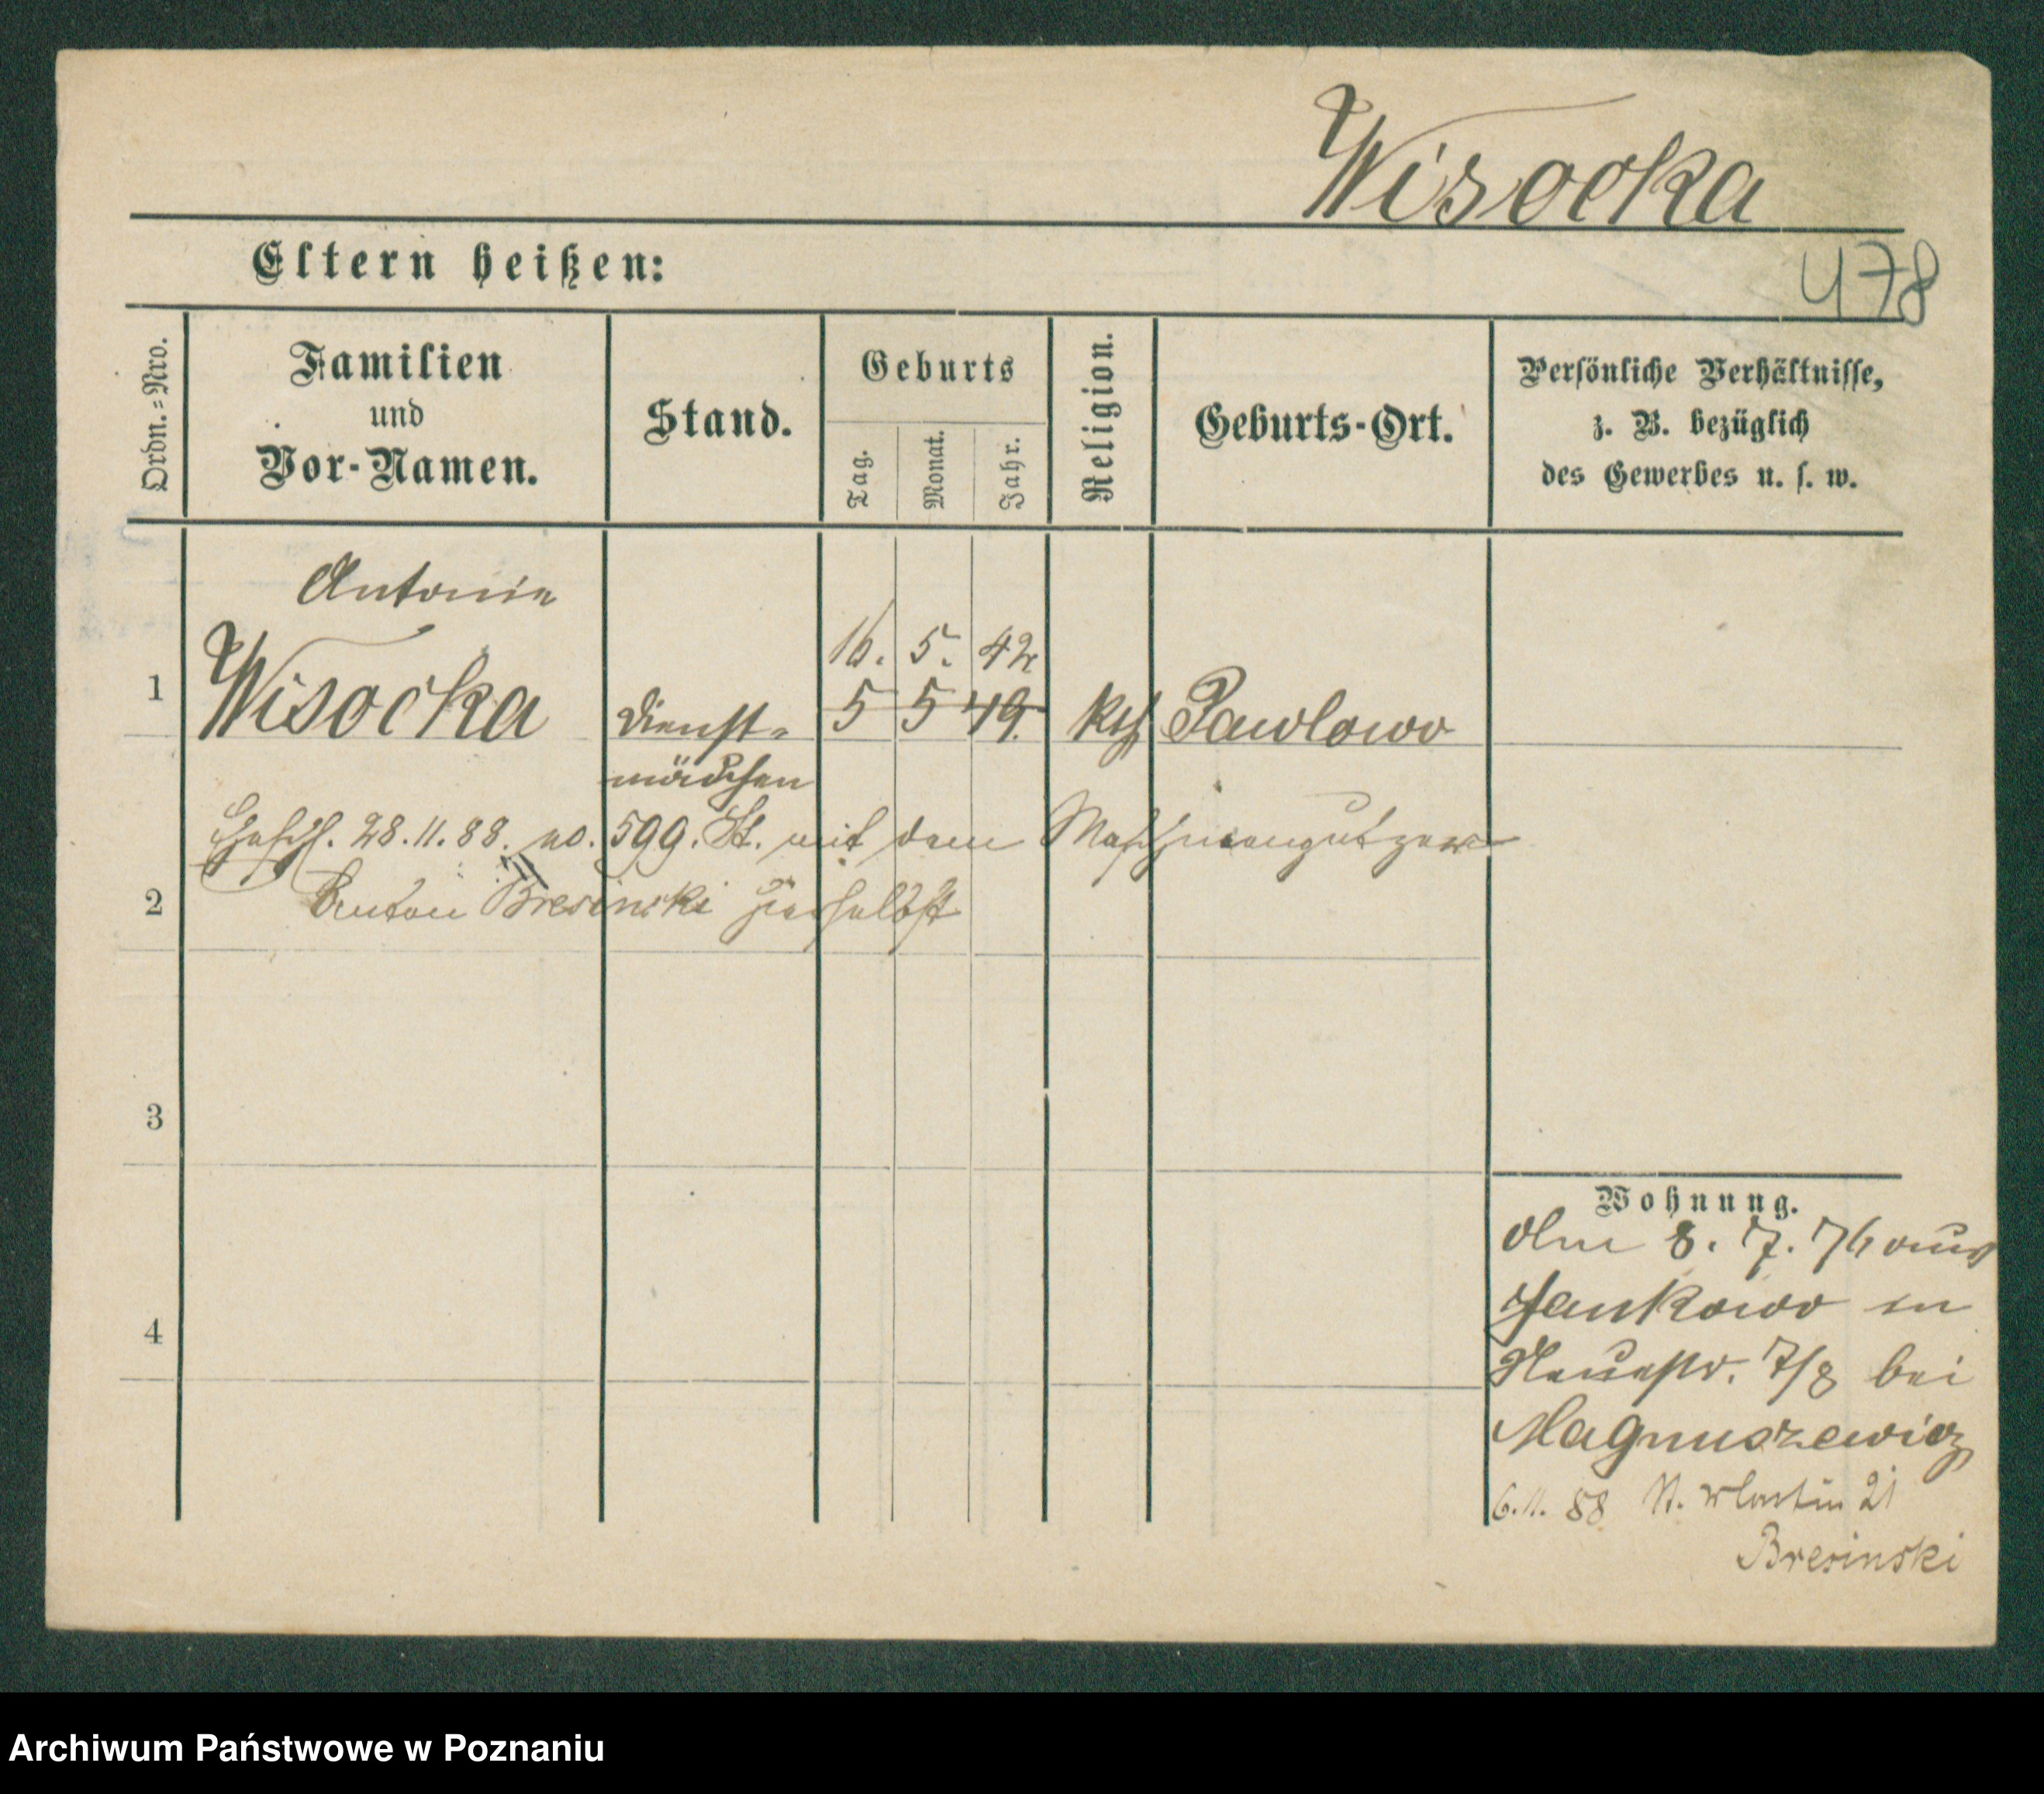 Wisocka
478
Eltern heißen:
Ordn.=Nro.
Familien
und
Vor-Namen.
Stand.
Geburts
Tag.
Monat.
Jahr.
Religion.
Geburts-Ort.
Persönliche Verhältnisse,
z. B. bezüglich
des Gewerbes u. s. w.
Antonie
16. 5. 42
1 Wisocka Dienst- 5 5 49. kth Pawlowo
mädchen
Ehesch. 28.11.88. no. 599. St. mit dem Maschinenputzer
2 Anton Bresinski hierselbst
3
4
Wohnung.
8. 7. 76 aus
Jankowo in
7/8 bei
Magnuszewicz
6.11.88 St. Martin 21
Bresinski
Archiwum Państwowe w Poznaniu